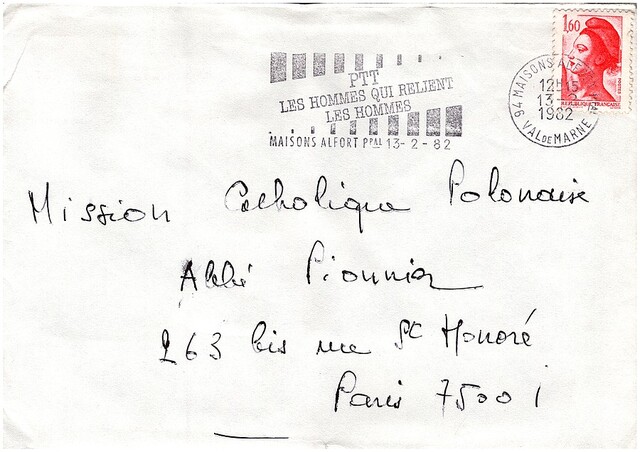 1,60
RÉPUBLIQUE FRANÇAISE
PTT
LES HOMMES QUI RELIENT
LES HOMMES
MAISONS ALFORT PPAL 13-2-82
94 MAISONS ALFORT PPAL
12H15
13-2
1982
VAL DE MARNE
Mission Catholique Polonaise
Abbé Pionnier
263 bis rue St Honoré
Paris 75001